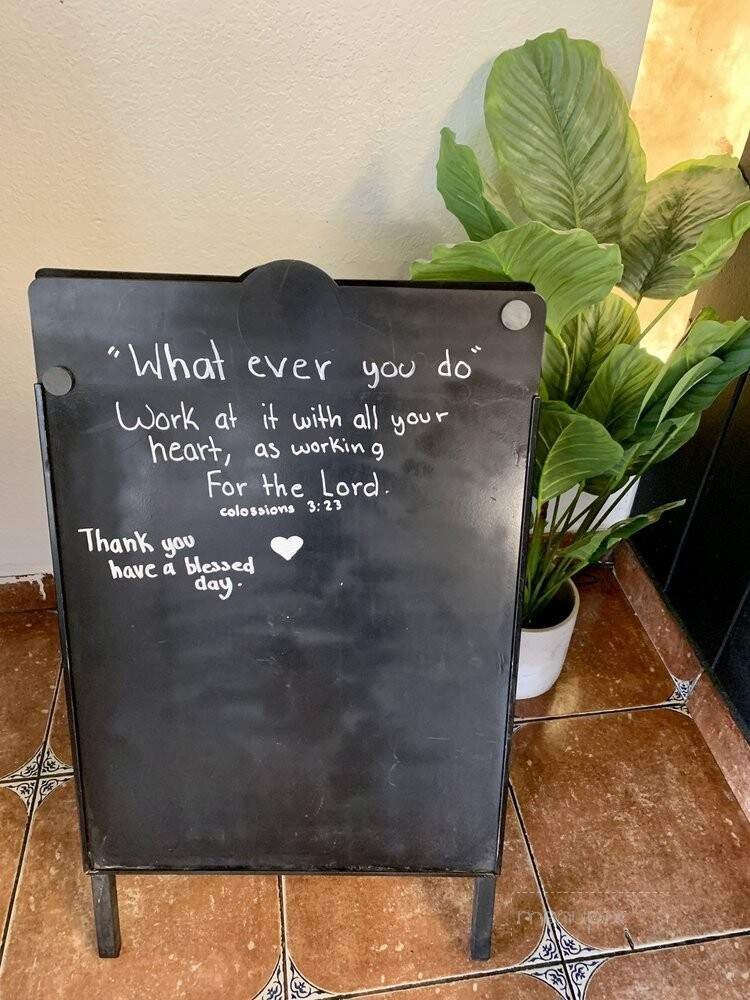 "What ever you do"
Work at it with all your
heart, as working
For the Lord.
colossions 3:23
Thank you
have a blessed
day.